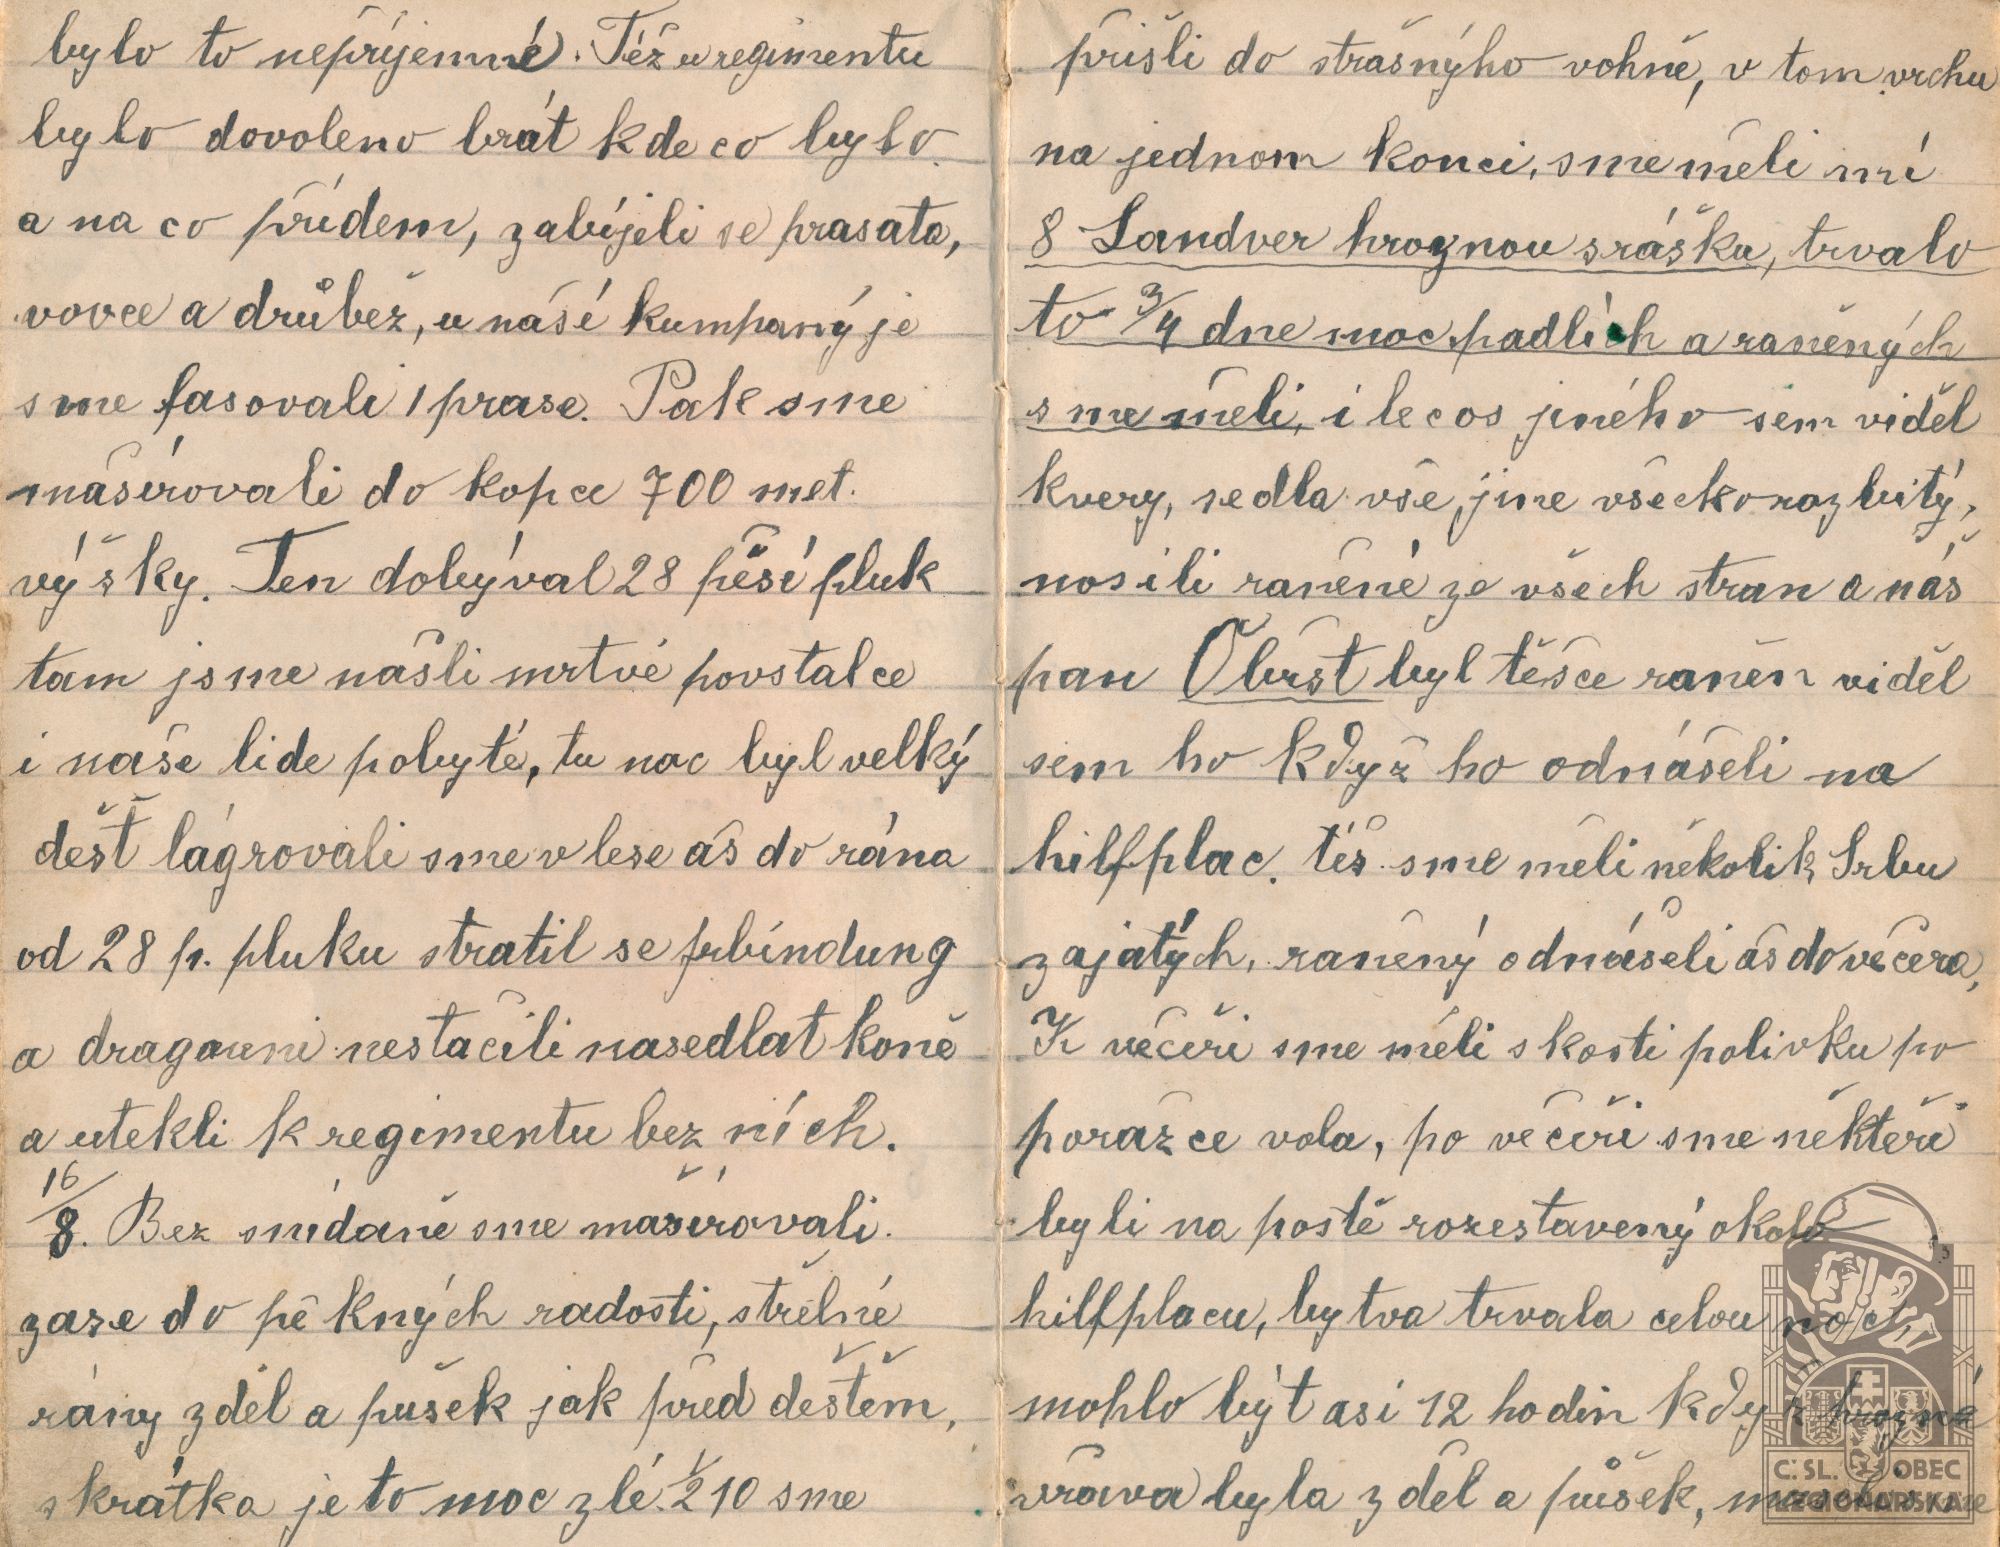 bylo to nepříjemné. Též u regimentu
bylo dovoleno brát kde co bylo
a na co přídem, zabíjeli se prasata,
vovce a drůbež, u náší kumpaný je
sme fasovali 1 prase. Pak sme
mášírovali do kopce 700 met.
výšky. Ten dobýval 28 pěší pluk
tam jsme našli mrtvé povstalce
i naše lide pobyté, tu noc byl velký
déšť lágrovali sme v lese áš do rána
od 28 p. pluku stratil se frbindung
a dragouni nestačili nasedlat koně
a utekli k regimentu bez ních.
16/8. Bez snídaně sme mašírovali
zase do pěkných radosti, střelné
rány z děl a pušek jak před deštěm,
skrátka je to moc zlé. ½ 10 sme
přišli do strašnýho vohně, v tom vrchu
na jednom konci, sme měli mí
8 Landver hroznou srášku, trvalo
to 3/4 dne moc padlích a raněných
sme měli, i lecos jného sem viděl
kvery, sedla vše jme všecko rozbitý,
nosili raněné ze všech stran a náš
pan Obršt byl těšce raněn viděl
sem ho když ho odnášeli na
hilfplac. téš sme měli několik Srbu
zajatých, raněný odnášeli áš do večera,
K večeři sme měli s kosti polivku po
porážce vola, po večeři sme někteří
byli na postě rozestavený okolo
hilfplacu, bytva trvala celou noc,
mohlo být asi 12 hodin když hrozné
vrava byla z děl a pušek, museli sme
Č. SL. OBEC
LEGIONÁŘSKÁ